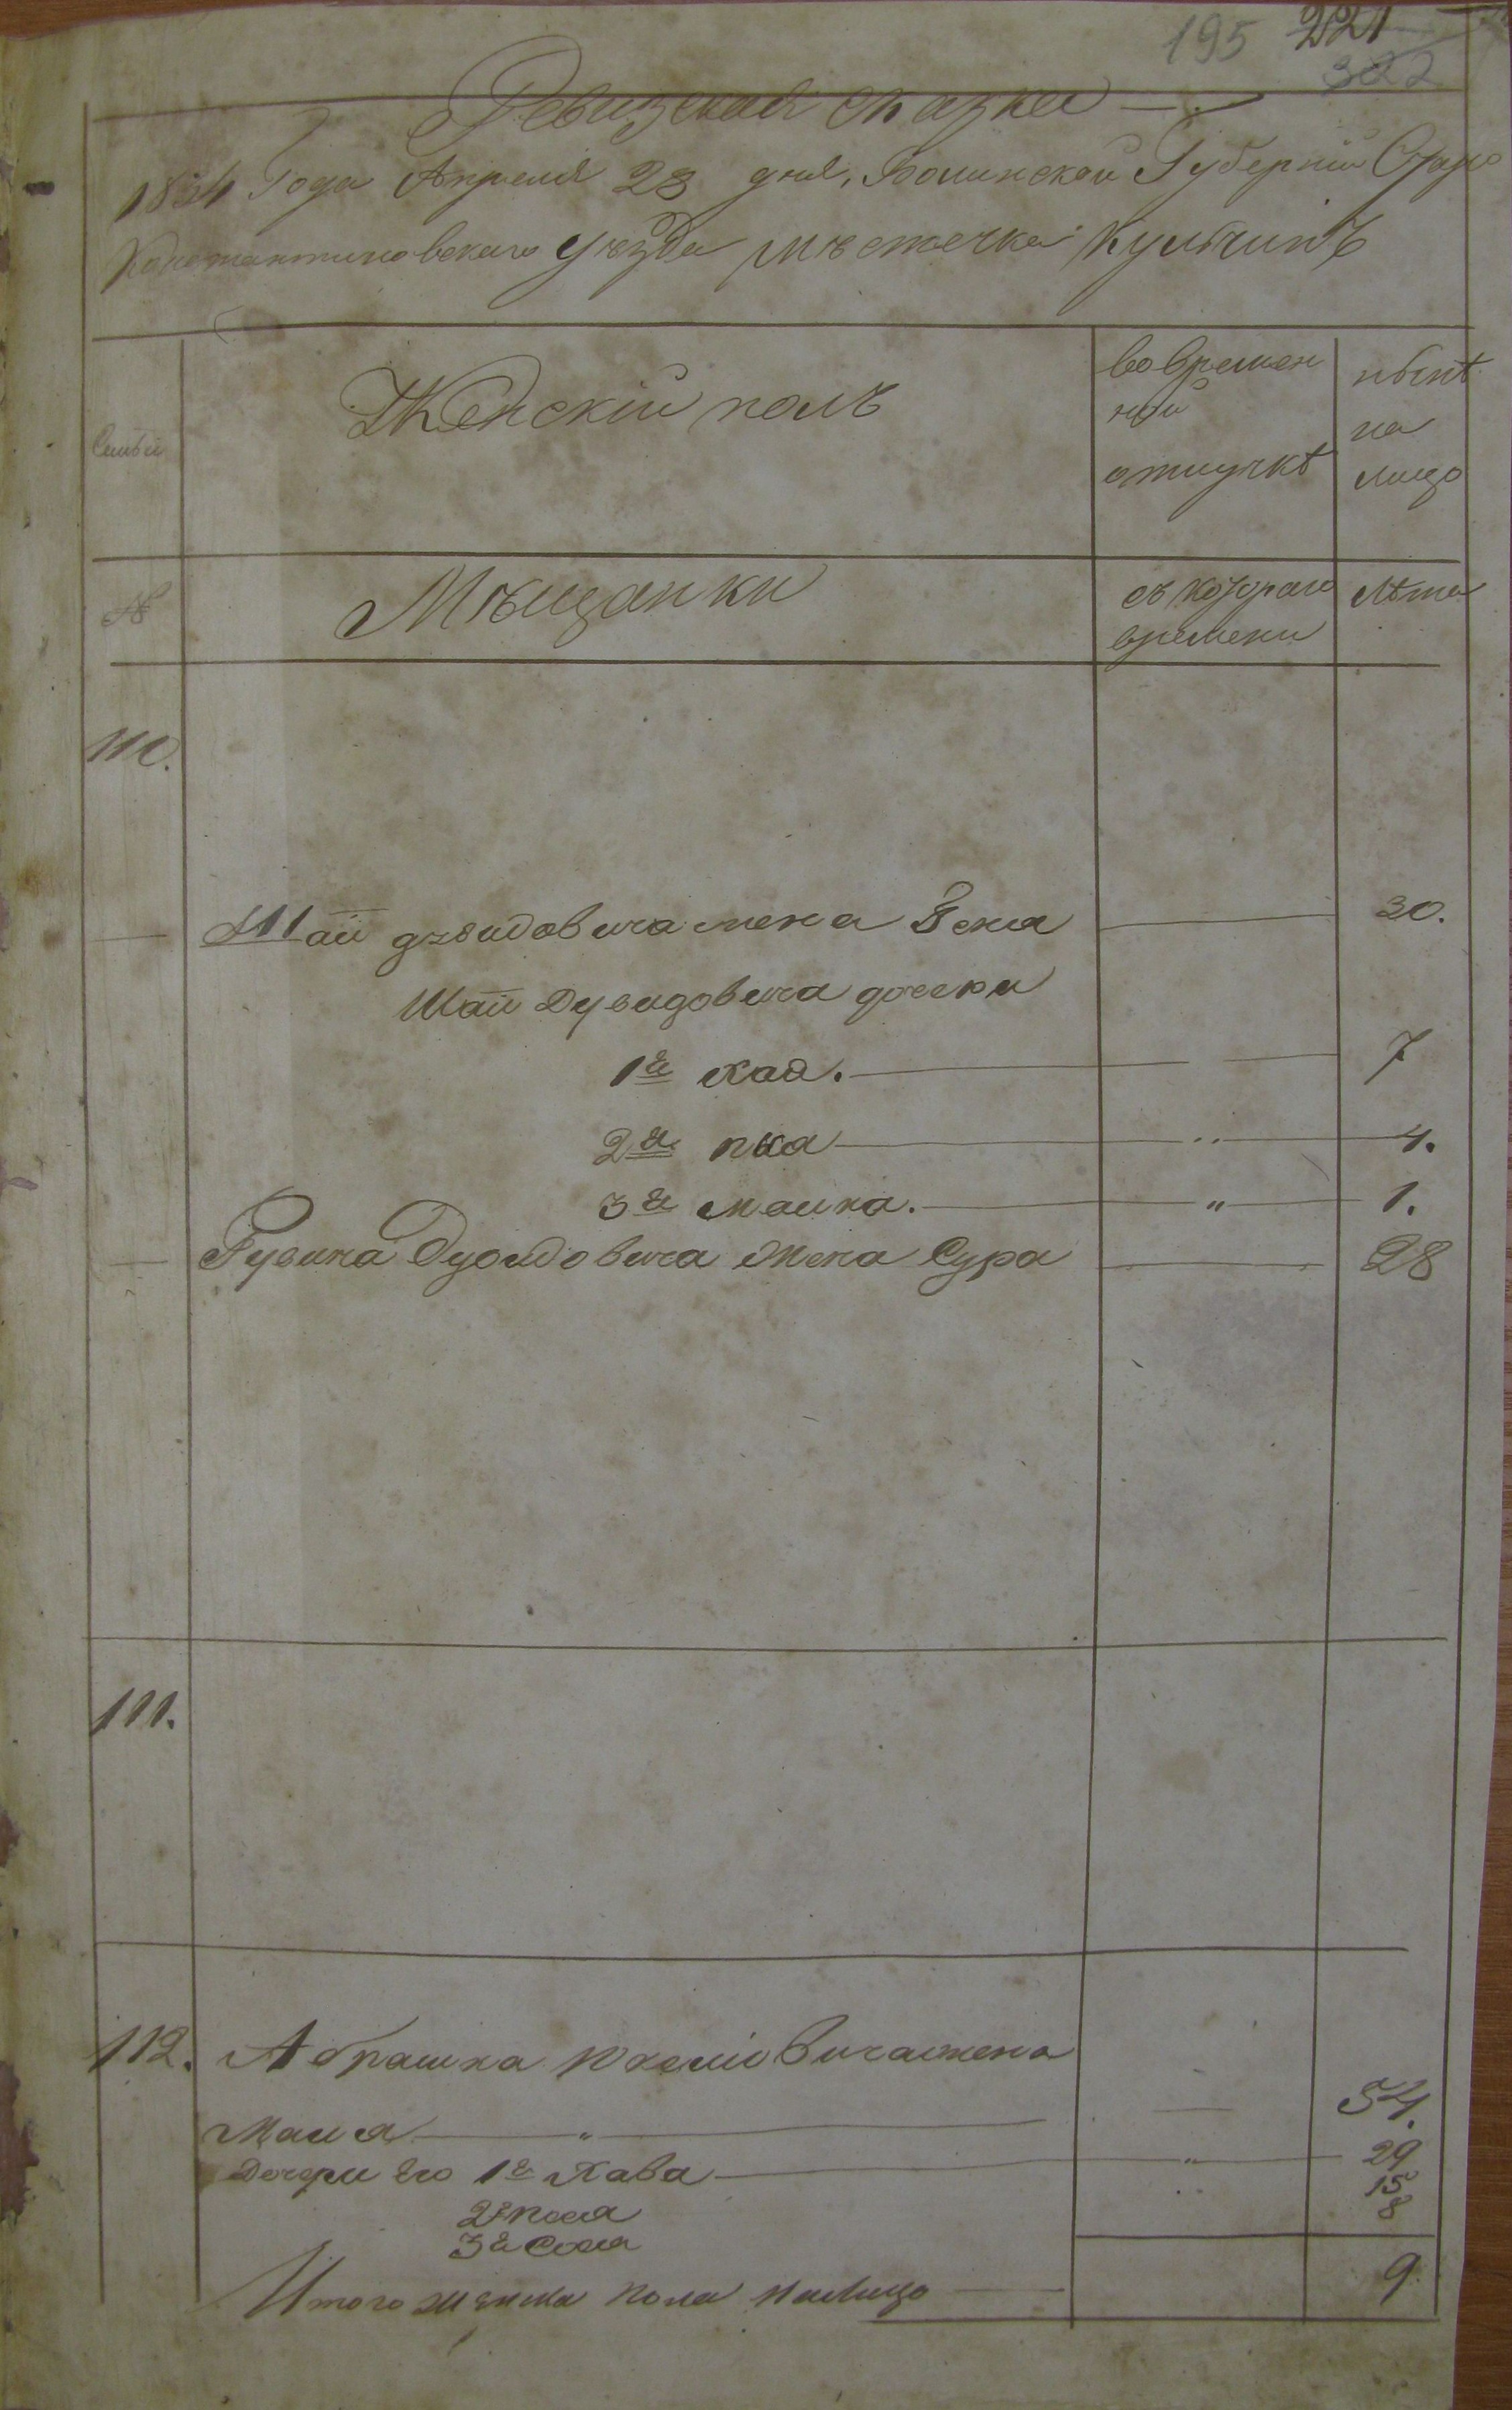 195 221
322
Ревизская сказка
1834 Года Апреля 23 дня, Волинской Губерніи Старо
Константиновскаго Уѣзда мѣстечка Кульчинъ
Семьи
Женскій полъ
во времен
ной
отлучкѣ
нынѣ
на
лицо
№
Мѣщанки
съ котораго
времени
лѣта
110.
Шаи Дувидовича жена 30.
Шаи Дувидовича дочери
1я Хая. 7
2я 4.
3я Малка. " 1.
Рувина Дувидовича жена Сура 28
111.
112. Абрашка жена
Маля " 54.
Дочери Его 1я Хава " 29
2я 15
3я 8
Итого женска пола налицо 9